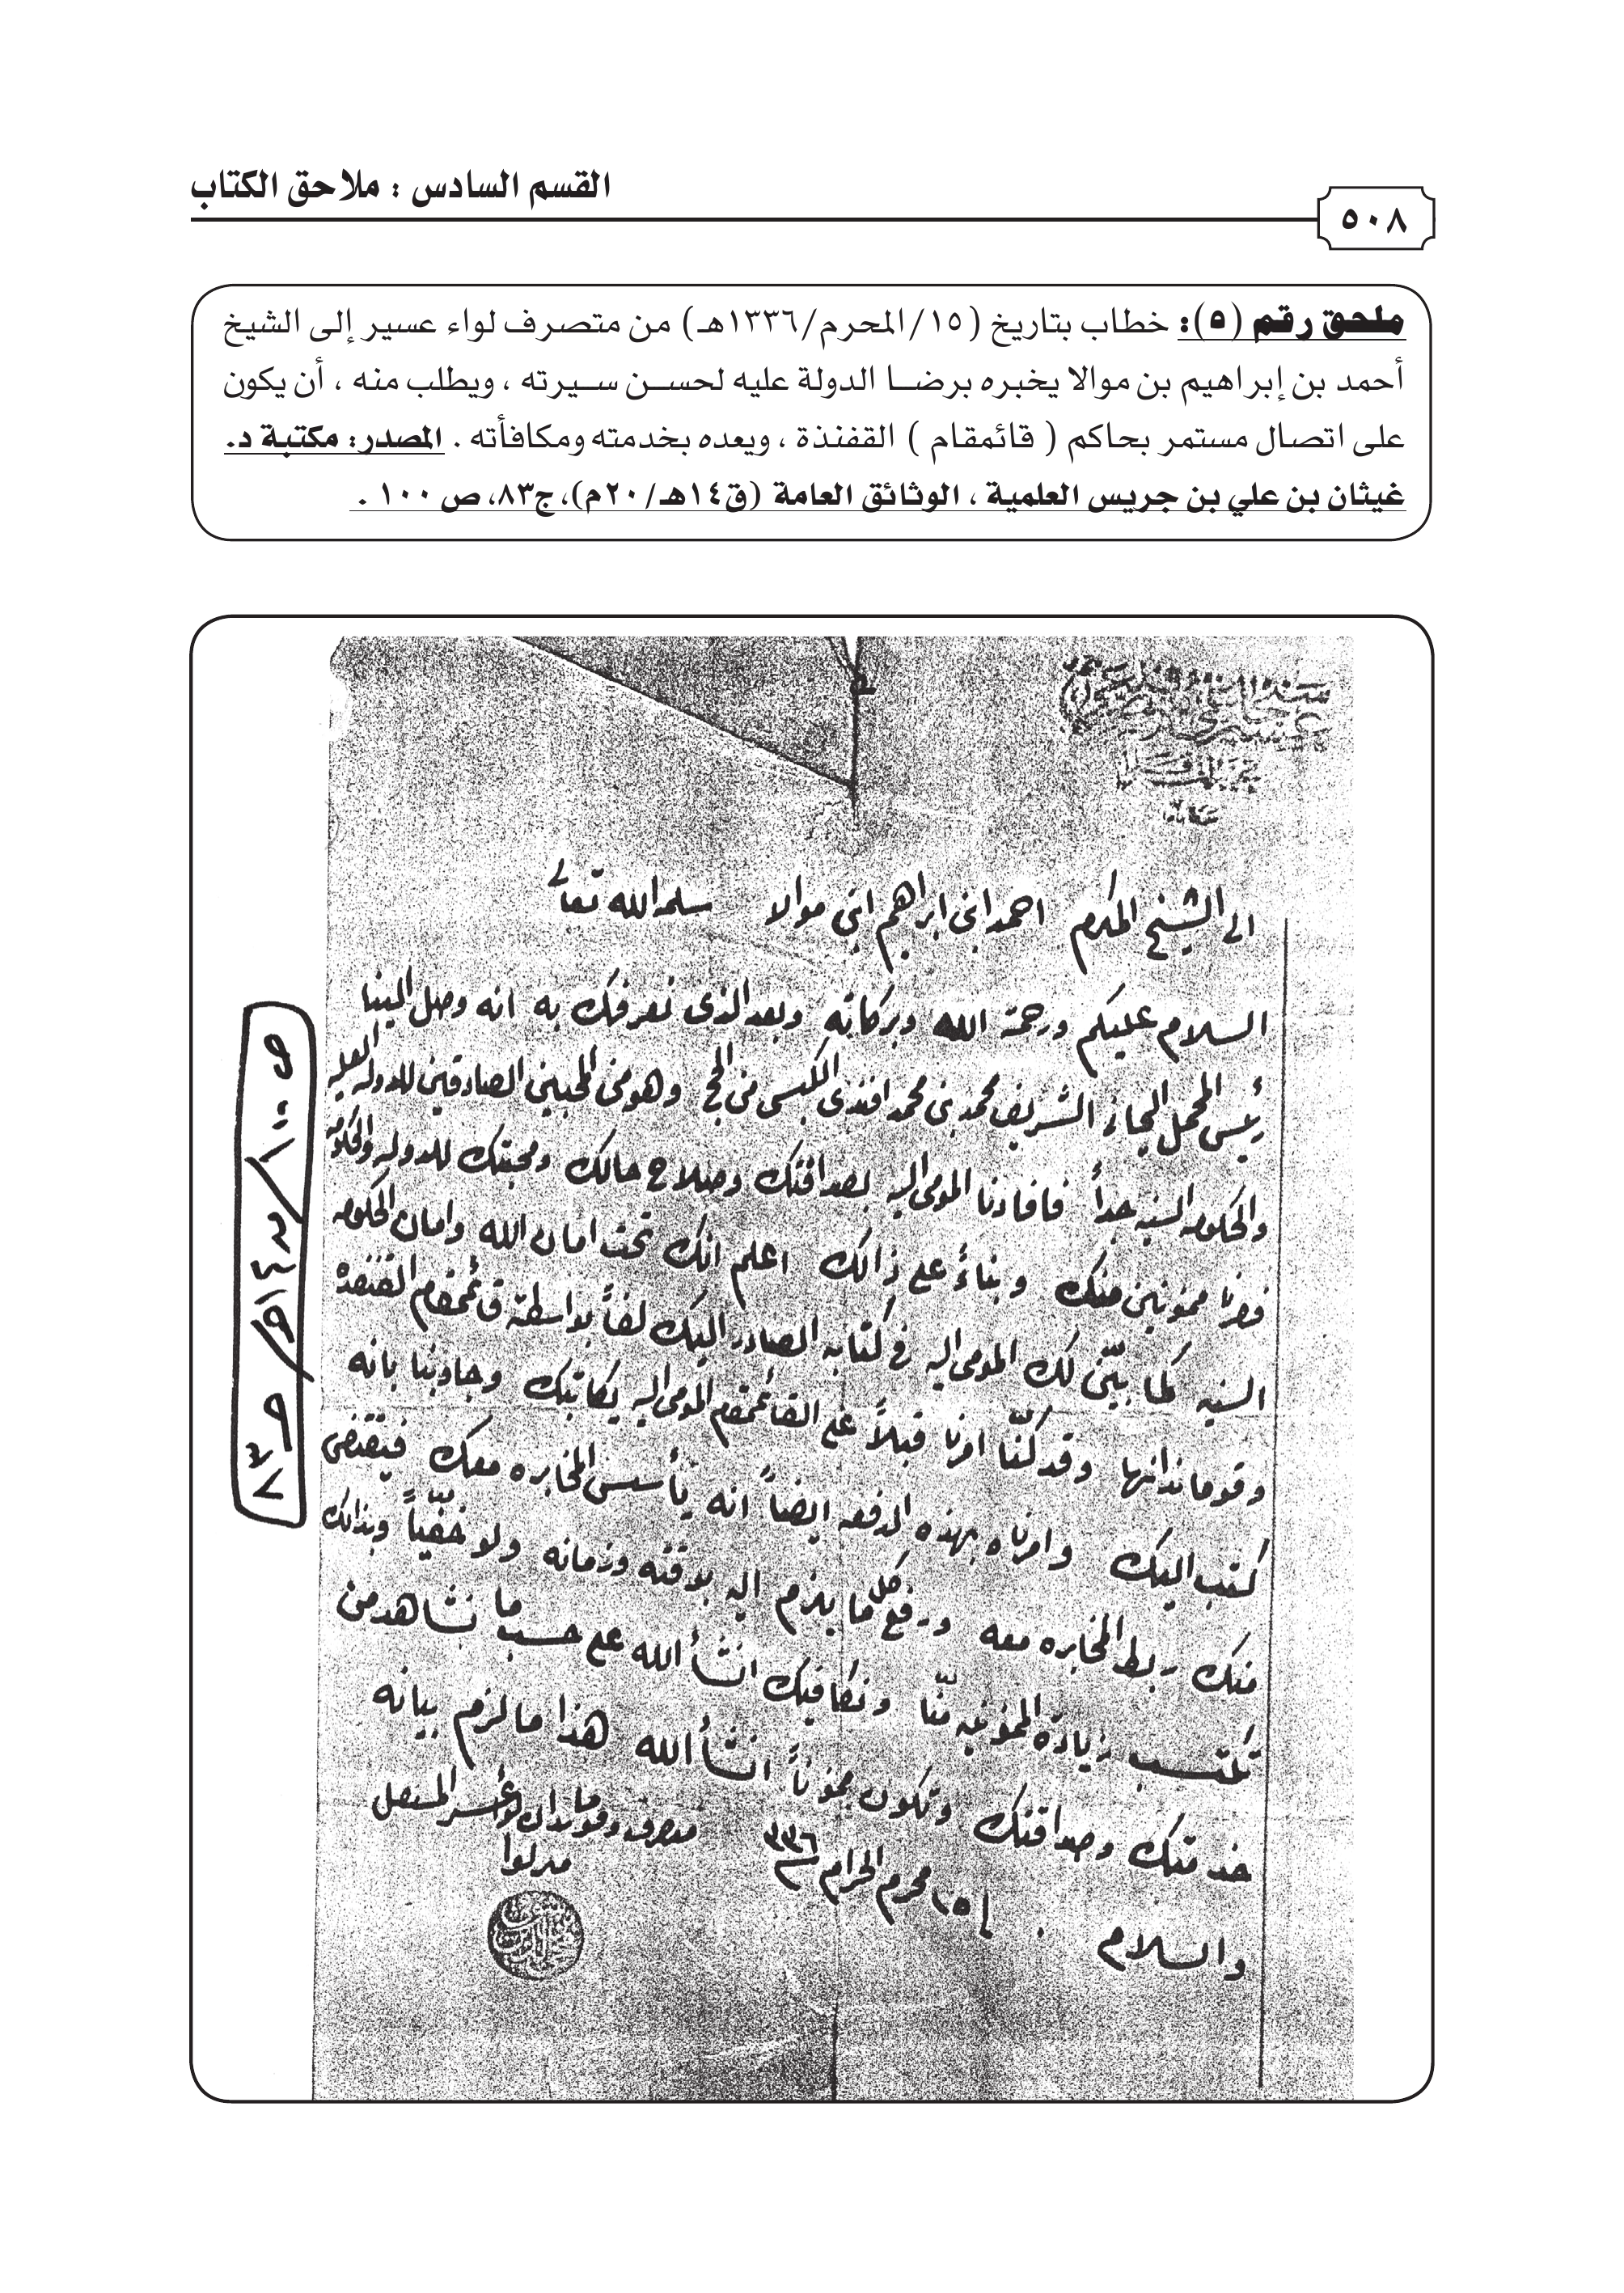 القسم السادس : ملاحق الكتاب
٥٠٨
ملحق رقم (٥): خطاب بتاريخ (١٥/المحرم/١٣٣٦هـ) من متصرف لواء عسير إلى الشيخ
أحمد بن إبراهيم بن موالا يخبره برضا الدولة عليه لحسن سيرته ، ويطلب منه ، أن يكون
على اتصال مستمر بحاكم ( قائمقام ) القفنذة ، ويعده بخدمته ومكافأته . المصدر: مكتبة د.
غيثان بن علي بن جريس العلمية ، الوثائق العامة (ق١٤هـ/٢٠م)، ج٨٣، ص ١٠٠ .
الى الشيخ المكرم احمد ابن ابراهيم ابن موالا سلمه الله تعالى
السلام عليكم ورحمة الله وبركاته وبعد الذى نعرفك به انه وصل الينا
رئيس المحمل الحجازى الشريف محمد بن محمد افندى الكبسى من الحج وهو من المحبين الصادقين للدوله العليه
والحكومه السنيه جداً فافادنا المومى اليه بصداقتك وصلاح حالك ومحبتك للدوله والحكومه
فصرنا ممنونين منك وبناءً على ذالك اعلم انك تحت امان الله وامان الحكومه
السنيه كما بيّن لك المومى اليه فى كتابه الصادر اليك لفاً بواسطة قائمقام القنفده
وقومانداتها وقد كنّا امرنا قبلاً على القائمقام المومى اليه يكاتبك وجاوبنا بانه
كتب اليك وامرناه بهذه الدفعه ايضاً انه يأسس المخابره معك فيقتضى
منك ربط المخابره معه ورفع كل ما يلزم اليه بوقته وزمانه ولو خفيّاً وبذالك
تكتسب زيادة الممنونيه منّا ونكافيك انشأ الله على حسب ما نشاهد من
خدمتك وصداقتك وتكون ممنوناً انشأ الله هذا ما لزم بيانه
والسلام ١٥ محرم الحرام ٣٣٦
متصرف وقومندان لواء عسير المستقل
ميرلوا
ص ١٠٠ / ج ٨٣